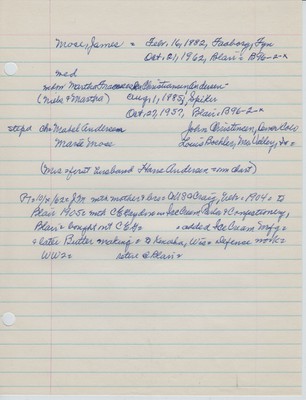 Mose, James = Feb. 16, 1882, Faaborg, Fyn
Oct. 21, 1962, Blair = B96-2-x
med
mdm Martha Christiansen Andersen
(Niels & Martha) Aug. 1, 1885, Spiker
Oct. 27, 1957, Blair, B96-2-x
steps ch = Mabel Andersen John Christensen,
Marie Mose Louis Bockler, Mo. Valley, Ia =
(Mrs = first husband Hans Andersen = on chart)
P = 10/ /62 = JM with mother & bro = to US = Craig, Nebr = 1904 = to
Blair 1905 = with C E in Ice Cream Parlor & Confectionery,
Blair = bought out C E = added Ice Cream Mfg =
= later Butter making = to Kenosha, Wis = Defense work =
WW2 = retire = Blair =